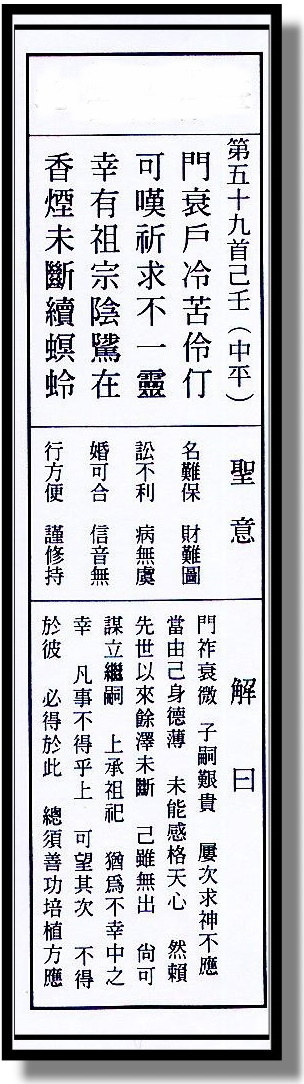 第五十九首己壬(中平)
門衰戶冷苦伶仃
可嘆祈求不一靈
幸有祖宗陰騭在
香煙未斷續螟蛉
聖意
名難保 財難圖
訟不利 病無虞
婚可合 信音無
行方便 謹修持
解曰
門祚衰微 子嗣艱貴 屢次求神不應
當由己身德薄 未能感格天心 然賴
先世以來餘澤未斷 己雖無出 尙可
謀立繼嗣 上承祖祀 猶為不幸中之
幸 凡事不得乎上 可望其次 不得
於彼 必得於此 總須善功培植方應